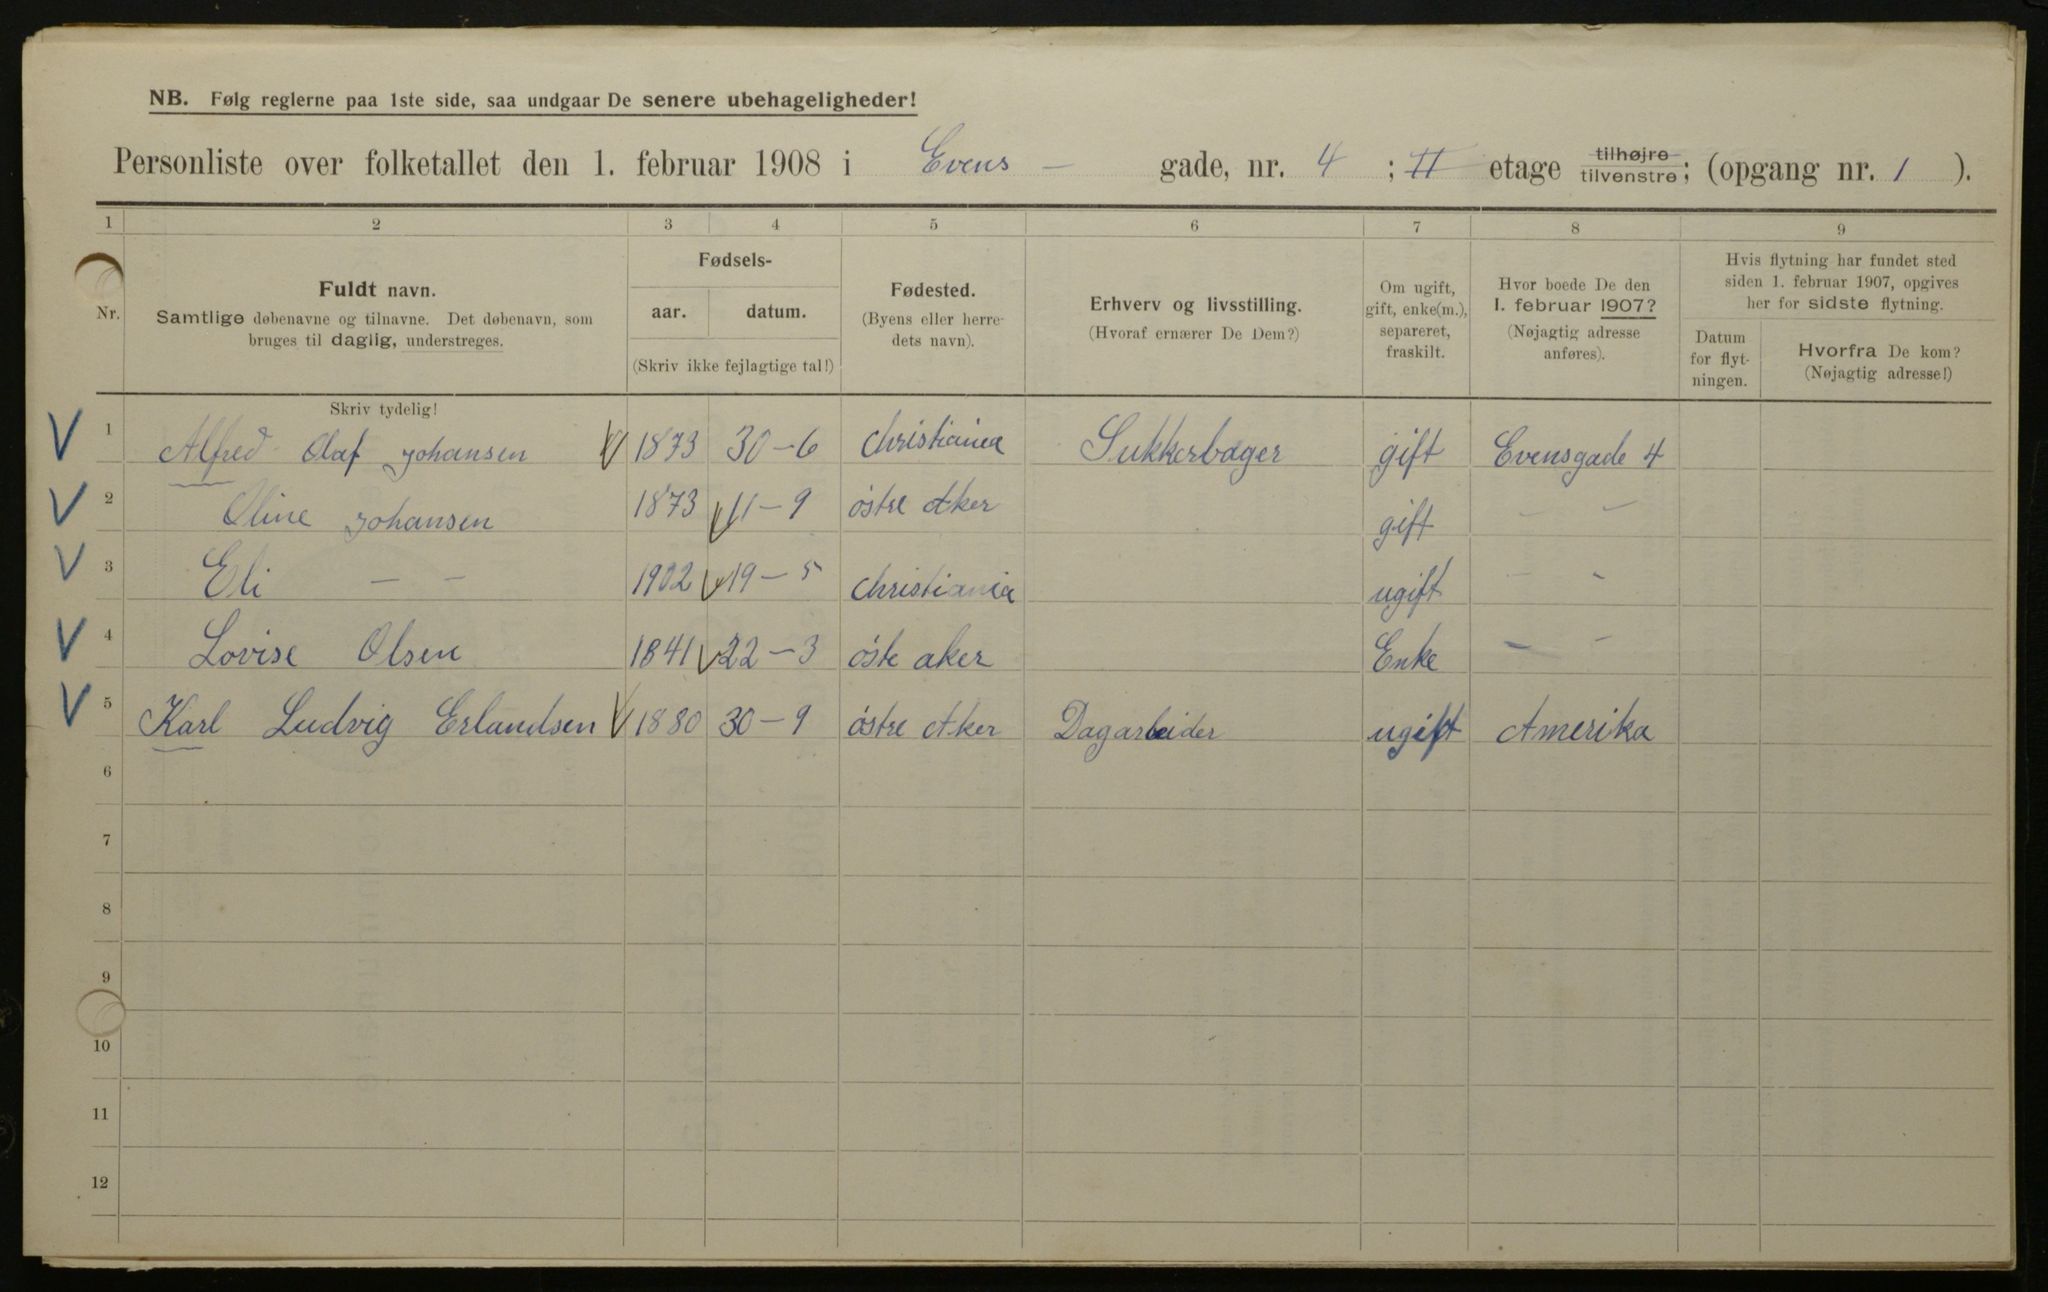 NB. Følg reglerne paa 1ste side, saa undgaar De senere ubehageligheder!
Personliste over folketallet den 1. februar 1908 i Evens - gade, nr. 4 ; II etage tilhøjre tilvenstre; (opgang nr. 1 ).
1 2 3 4 5 6 7 8 9
Nr.
Fuldt navn.
Samtlige døbenavne og tilnavne. Det døbenavn, som
bruges til daglig, understreges.
Skriv tydelig!
Fødsels-
aar. datum.
(Skriv ikke fejlagtige tal!)
Fødested.
(Byens eller herre-
dets navn).
Erhverv og livsstilling.
(Hvoraf ernærer De Dem?)
Om ugift,
gift, enke(m.),
separeret,
fraskilt.
Hvor boede De den
1. februar 1907?
(Nøjagtig adresse
anføres).
Hvis flytning har fundet sted
siden 1. februar 1907, opgives
her for sidste flytning.
Datum
for flyt-
ningen.
Hvorfra De kom?
(Nøjagtig adresse!)
V 1 Alfred Olaf Johansen V 1873 30-6 Christiania Sukkerbager gift Evensgade 4
V 2 Oline Johansen 1873 V 11-9 østre Aker gift - -
V 3 Eli - - 1902 V 19-5 Christiania ugift - -
V 4 Lovise Olsen 1841 V 22-3 øste aker Enke - -
V 5 Karl Ludvig Erlandsen V 1880 30-9 østre Aker Dagarbeider ugift Amerika
6
7
8
9
10
11
12